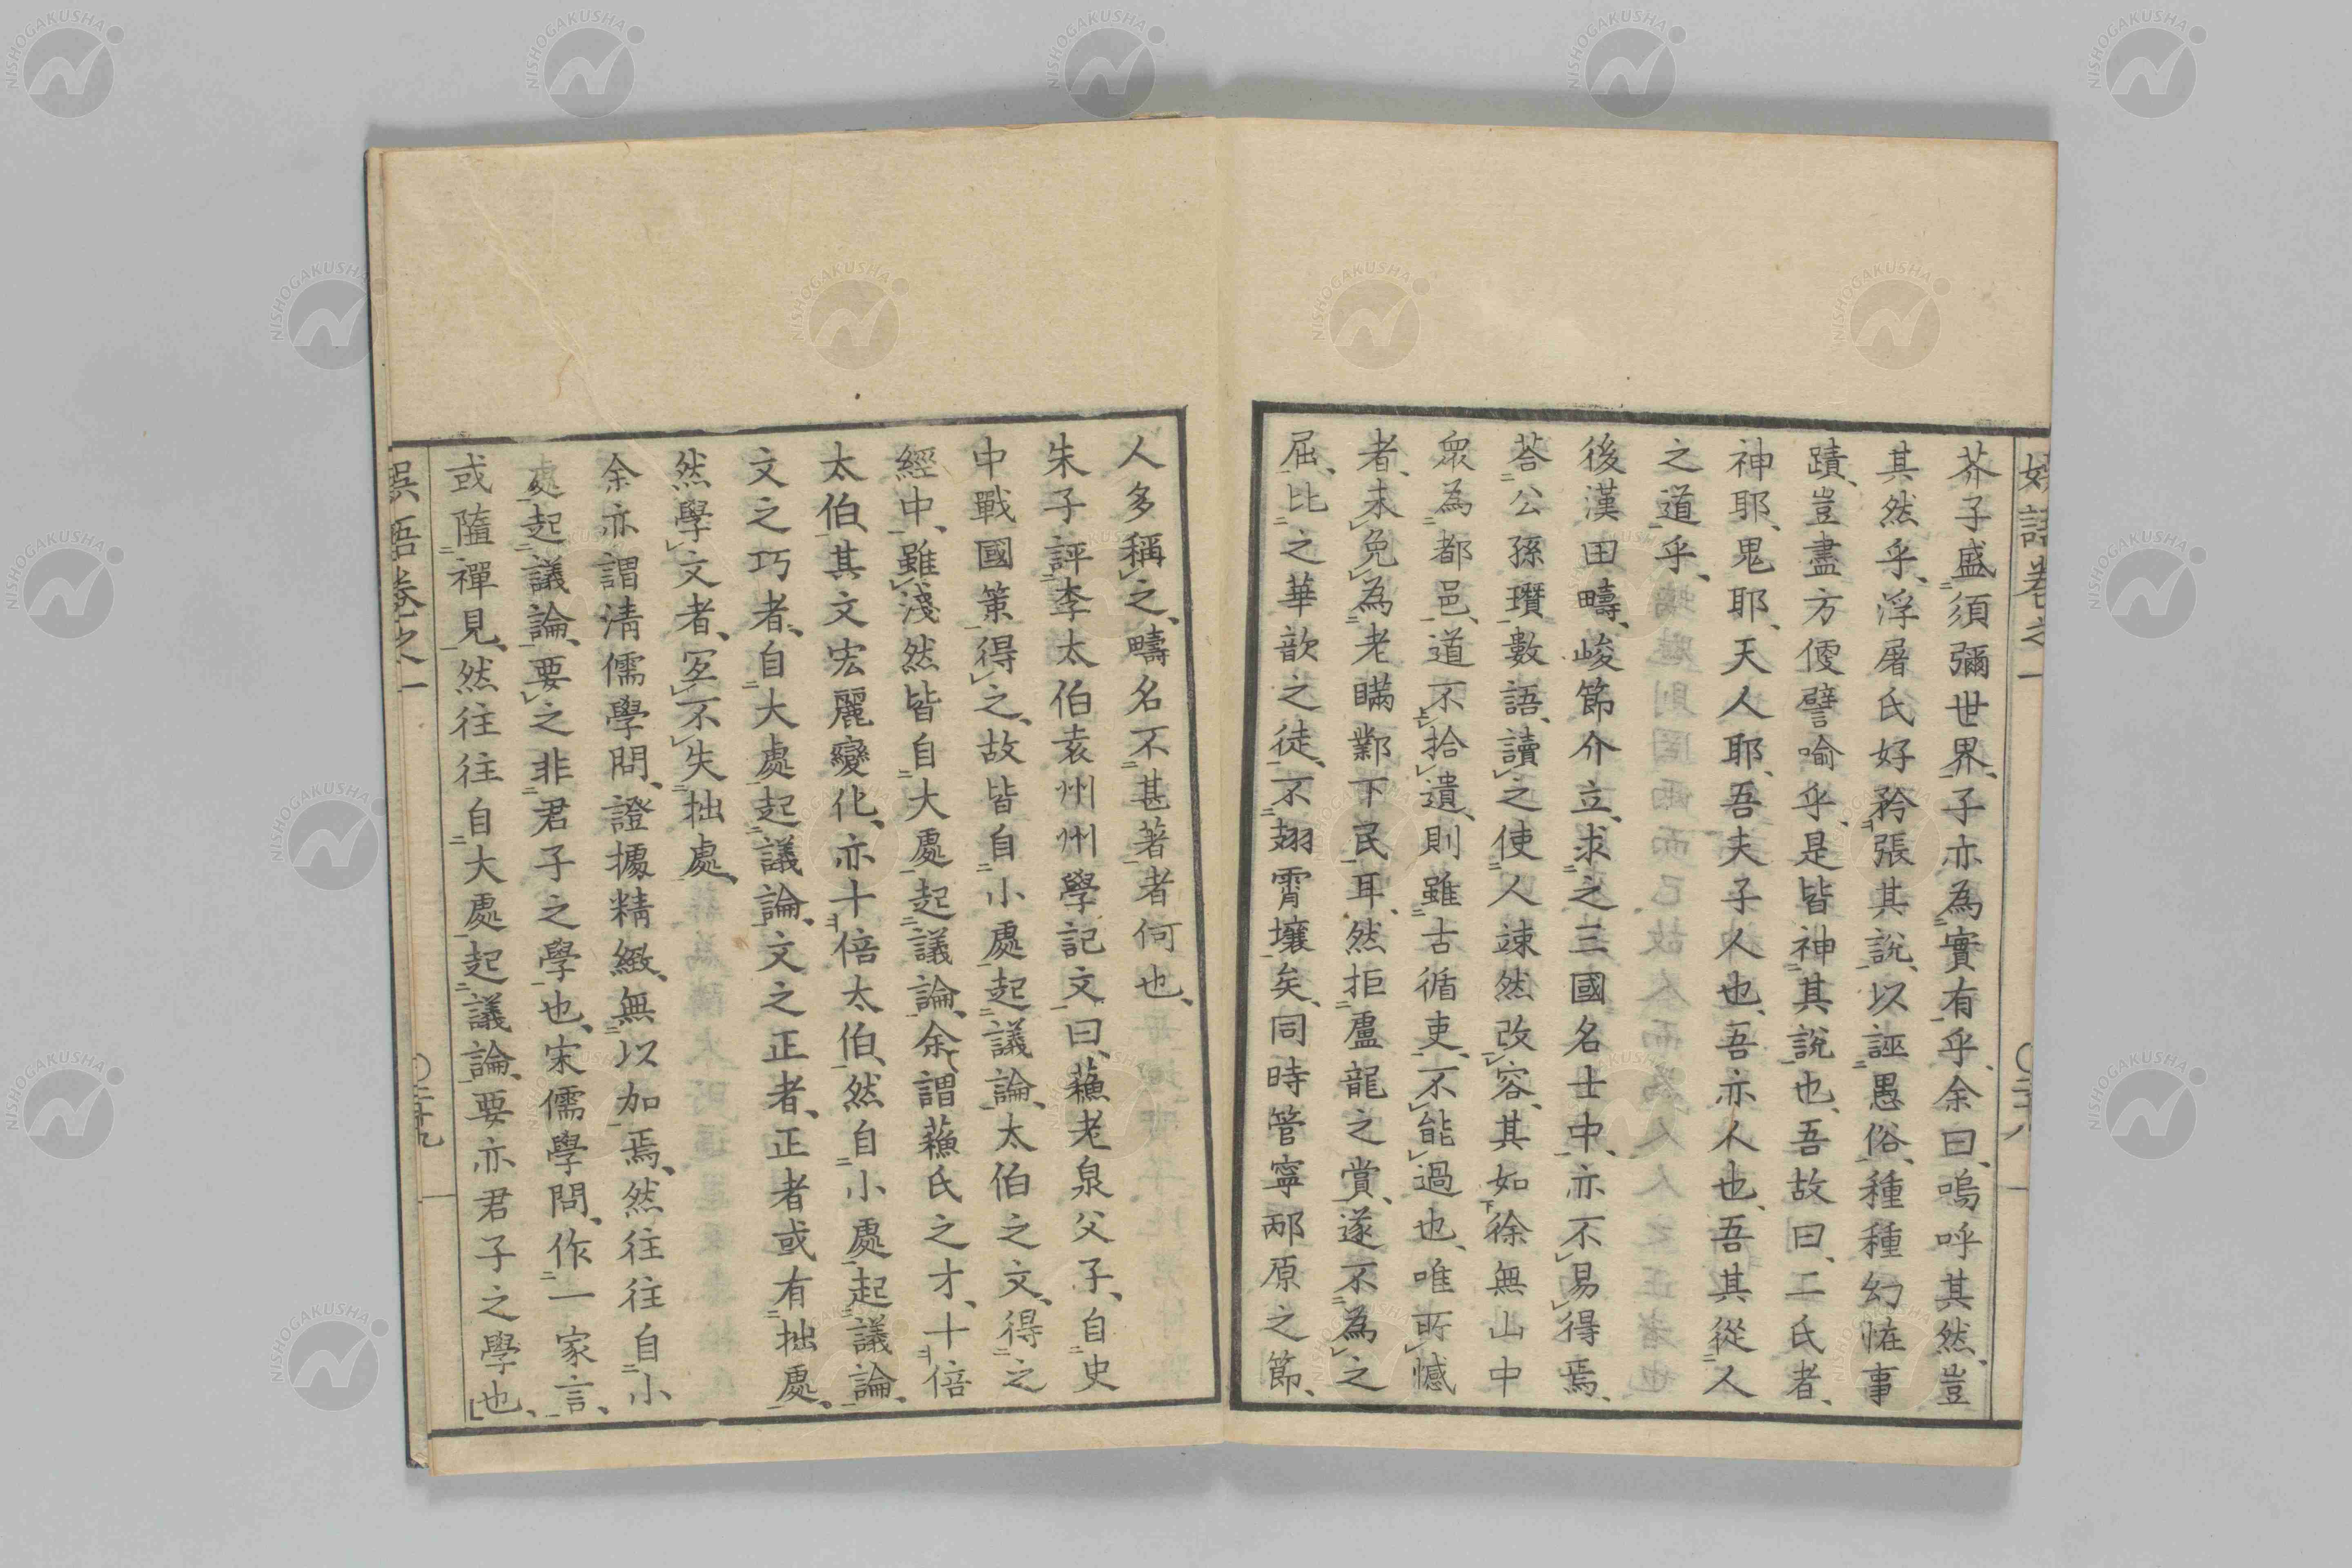 芥子盛須彌世界、子亦為實有乎、余曰、嗚呼其然、豈
其然乎、浮屠氏好矜張其說、以誣愚俗、種種幻怪事
蹟、豈盡方便譬喻乎、是皆神其說也、吾故曰、二氏者、
神耶、鬼耶、天人耶、吾夫子人也、吾亦人也、吾其從人
之道乎、
後漢田疇、峻節介立、求之三國名士中、亦不易得焉、
荅公孫瓚數語、讀之使人竦然改容、其如徐無山中
眾為都邑、道不拾遺、則雖古循吏、不能過也、唯所憾
者、未免為老瞞鄴下民耳、然拒盧龍之賞、遂不為之
屈、比之華歆之徒、不翅霄壤矣、同時管寧邴原之節、
人多稱之、疇名不甚著者何也、
朱子評李太伯袁州州學記文曰、蘓老泉父子、自史
中戰國策得之、故皆自小處起議論、太伯之文、得之
經中、雖淺然皆自大處起議論、余謂蘓氏之才、十倍
太伯、其文宏麗變化、亦十倍太伯、然自小處起議論、
文之巧者、自大處起議論、文之正者、正者或有拙處、
然學文者、寧不失拙處、
余亦謂清儒學問、證據精緻、無以加焉、然往往自小
處起議論、要之非君子之學也、宋儒學問、作一家言、
或隨禪見、然往往自大處起議論、要亦君子之學也、
語卷之一
〇二十九